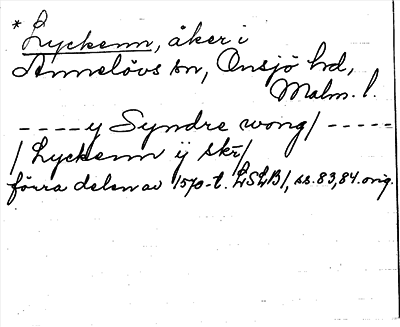 * Lyckenn, åker i
Annelövs sn, Onsjö hd,
Malm. l.
- - - - y Syndre wong / - - - - -
/ Lyckenn ij skr /
förra delen av 1570-t. LSLB/, ss. 83, 84. orig.